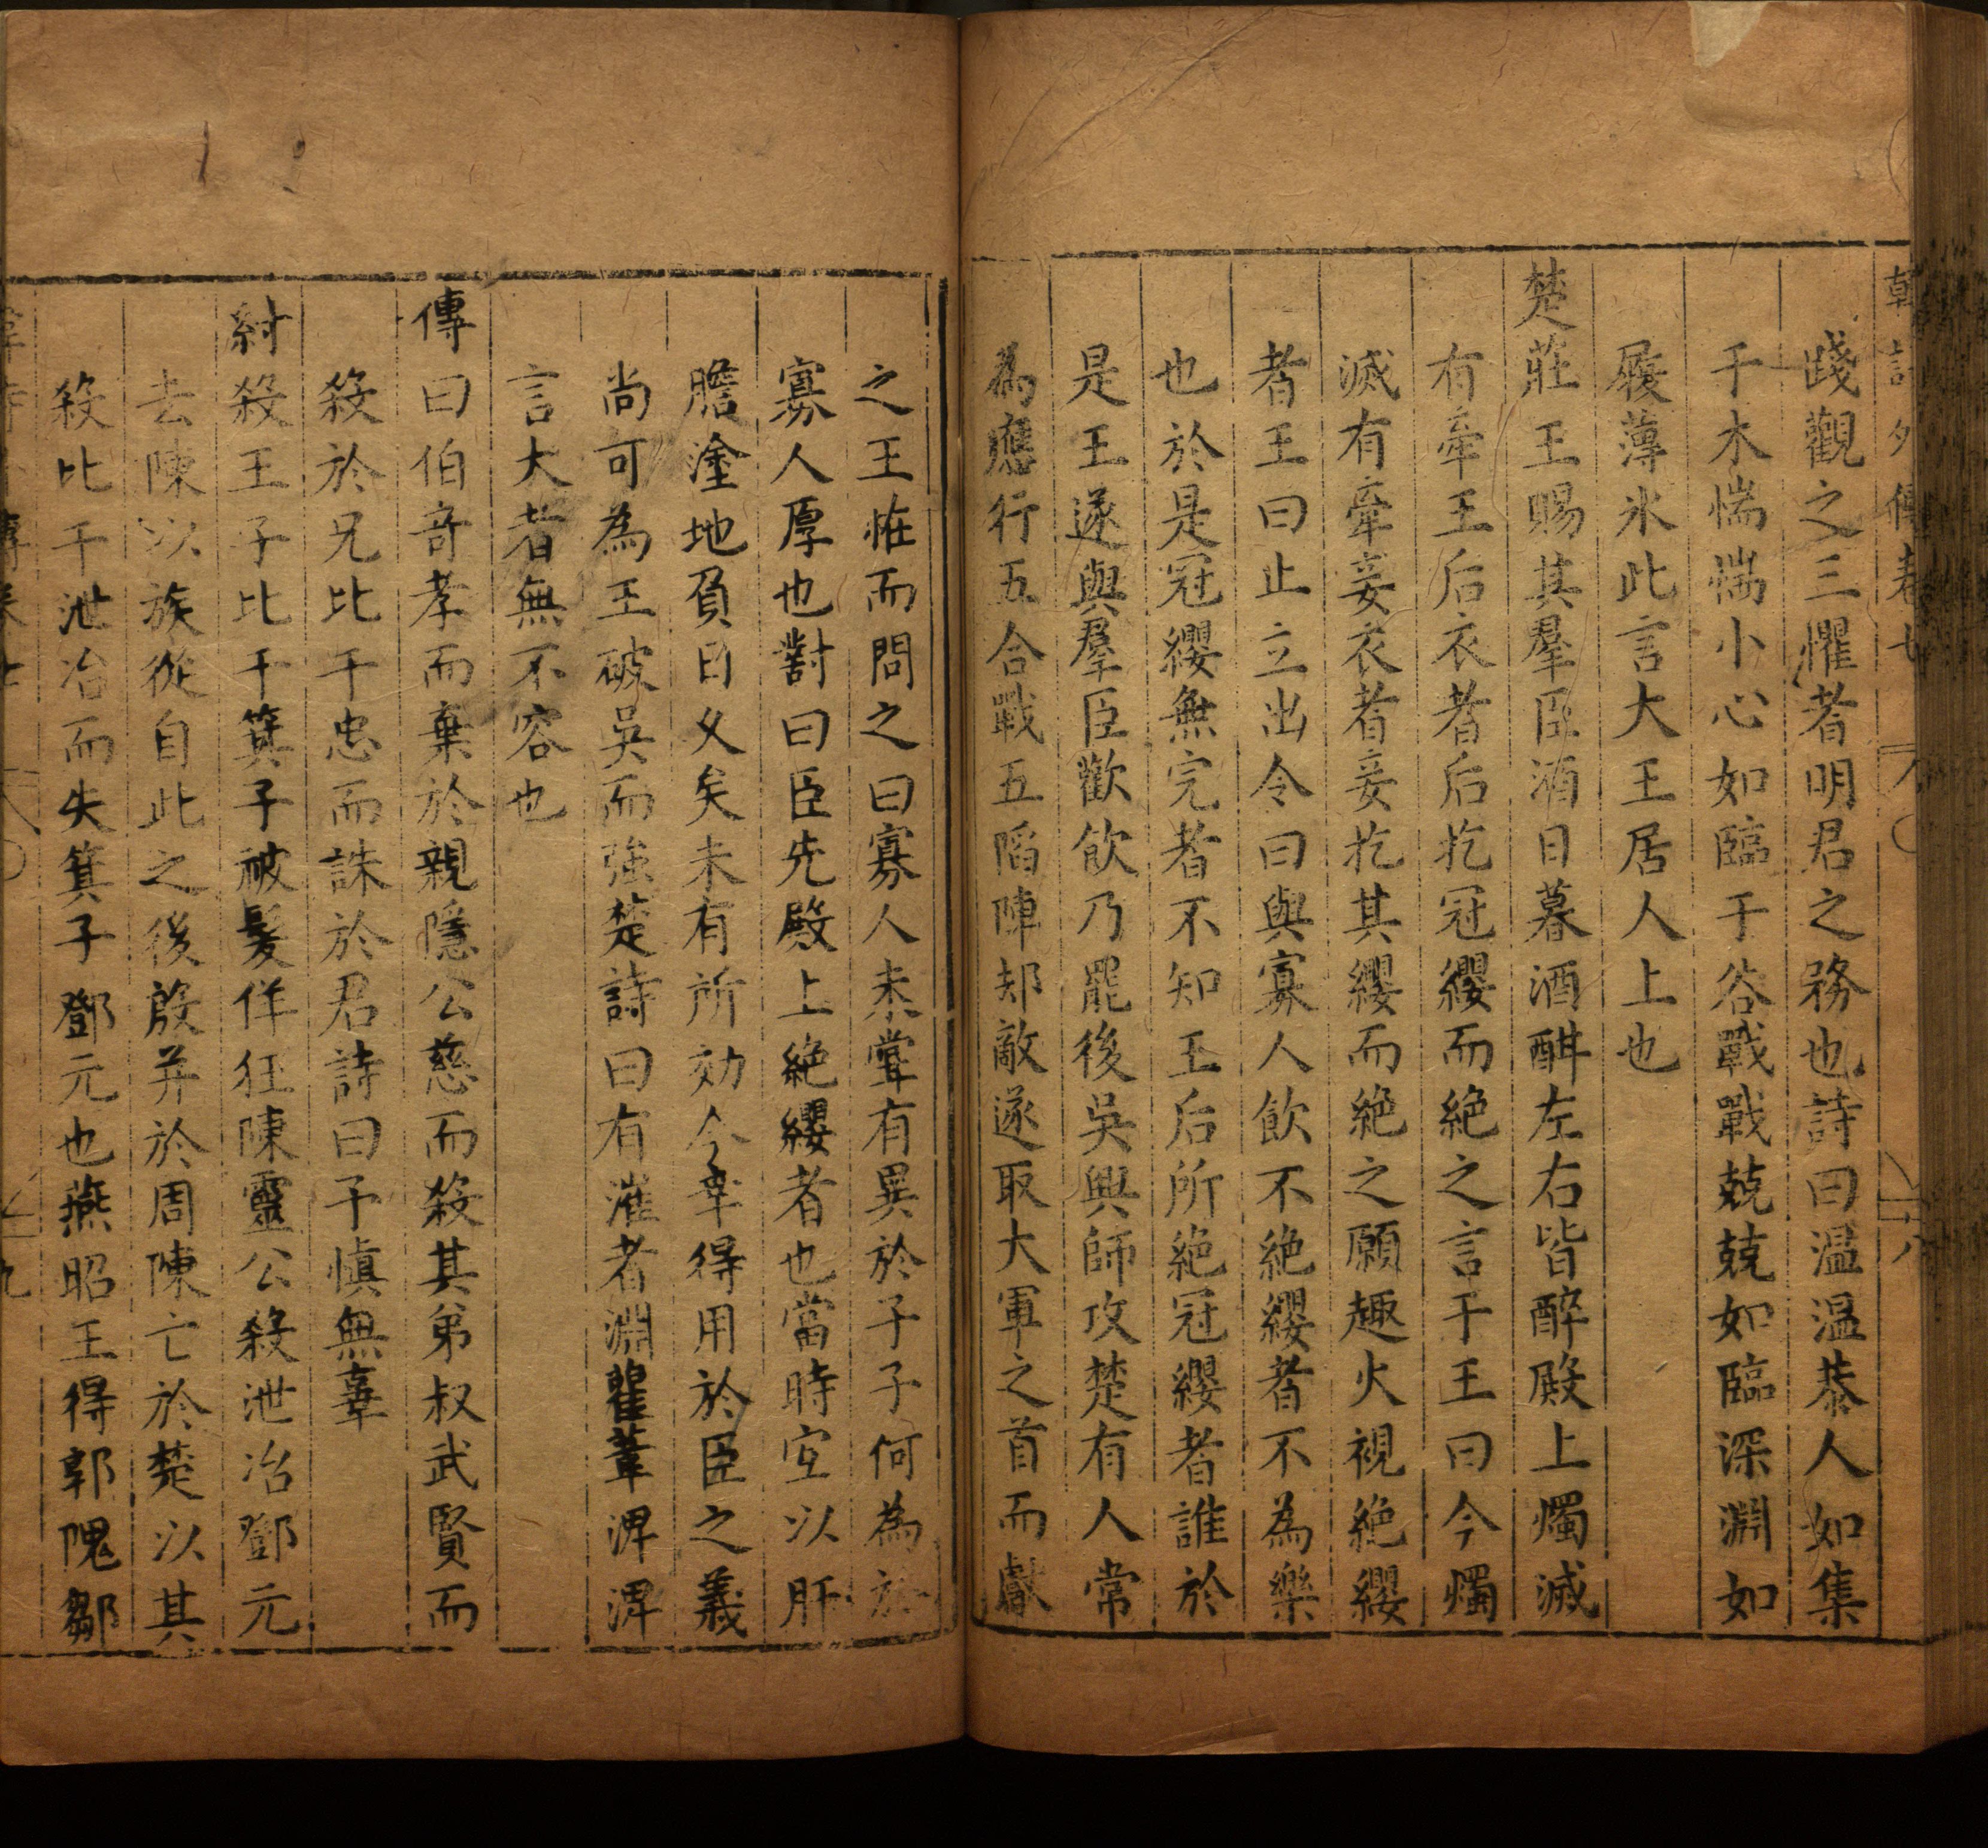 韓詩外傳卷七
八
踐觀之三懼者明君之務也詩曰溫溫恭人如集
于木惴惴小心如臨于谷戰戰兢兢如臨深淵如
履薄氷此言大王居人上也
楚莊王賜其羣臣酒日暮酒酣左右皆醉殿上燭滅
有牽王后衣者后扢冠纓而絶之言于王曰今燭
滅有牽妾衣者妾扢其纓而絶之願趣火視絶纓
者王曰止立出令曰與寡人飲不絶纓者不為樂
也於是冠纓無完者不知王后所絶冠纓者誰於
是王遂與羣臣歡飲乃罷後吳興師攻楚有人常
為應行五合戰五䧟陣却敵遂取大軍之首而獻
之王恠而問之曰寡人未嘗有異於子子何為於
寡人厚也對曰臣先殿上絶纓者也當時宜以肝
膽塗地負日乆矣未有所効今幸得用於臣之義
尚可為王破吳而強楚詩曰有漼者淵雚葦淠淠
言大者無不容也
傳曰伯奇孝而棄於親隱公慈而殺其弟叔武賢而
殺於兄比干忠而誅於君詩曰予愼無辜
紂殺王子比干箕子被髮佯狂陳靈公殺泄冶鄧元
去陳以族從自此之後殷并於周陳亡於楚以其
殺比干泄冶而失箕子鄧元也燕昭王得郭隗鄒
九